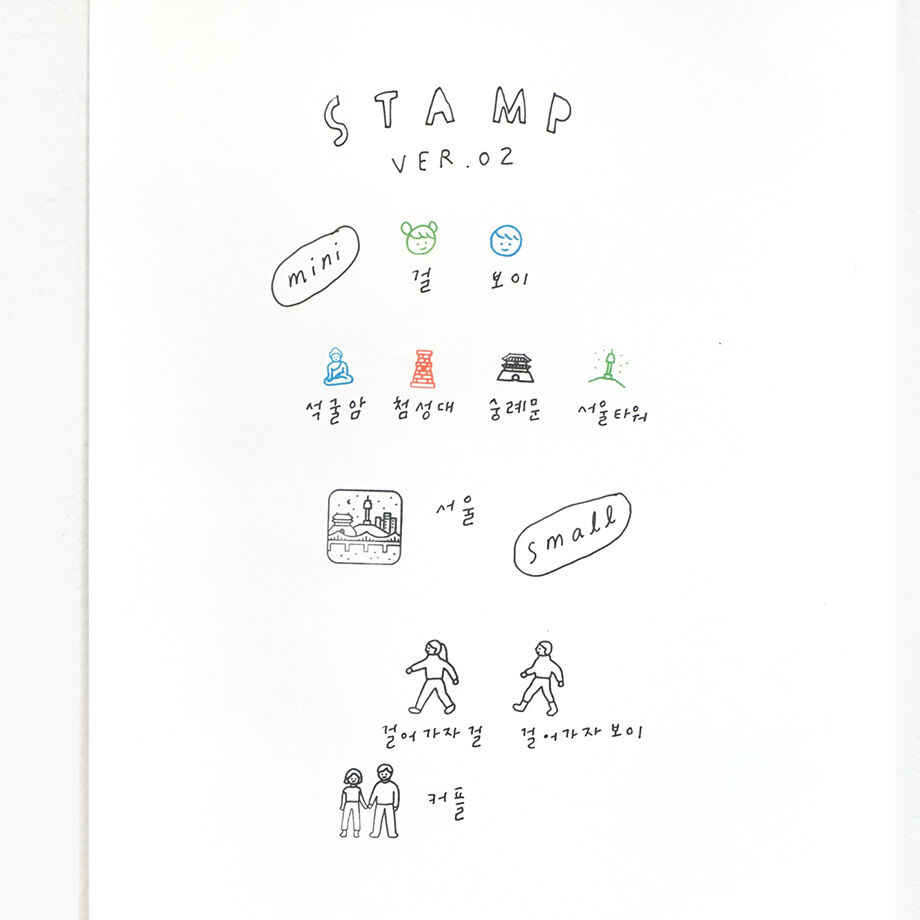 STAMP
VER.02
mini
걸 보이
석굴암 첨성대 숭례문 서울타워
서울
small
걸어가자 걸 걸어가자 보이
커플